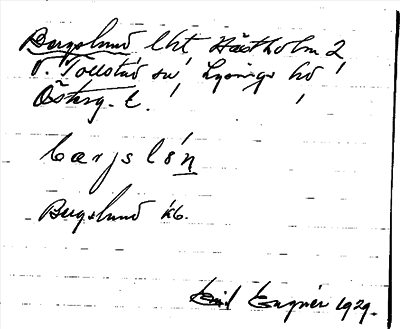 Bergslund lht Hästholm 2,
V. Tollstad sn, Lysings hd,
Österg. l.
bærjslón
Bergslund kb.
Emil Lagnér 1929.